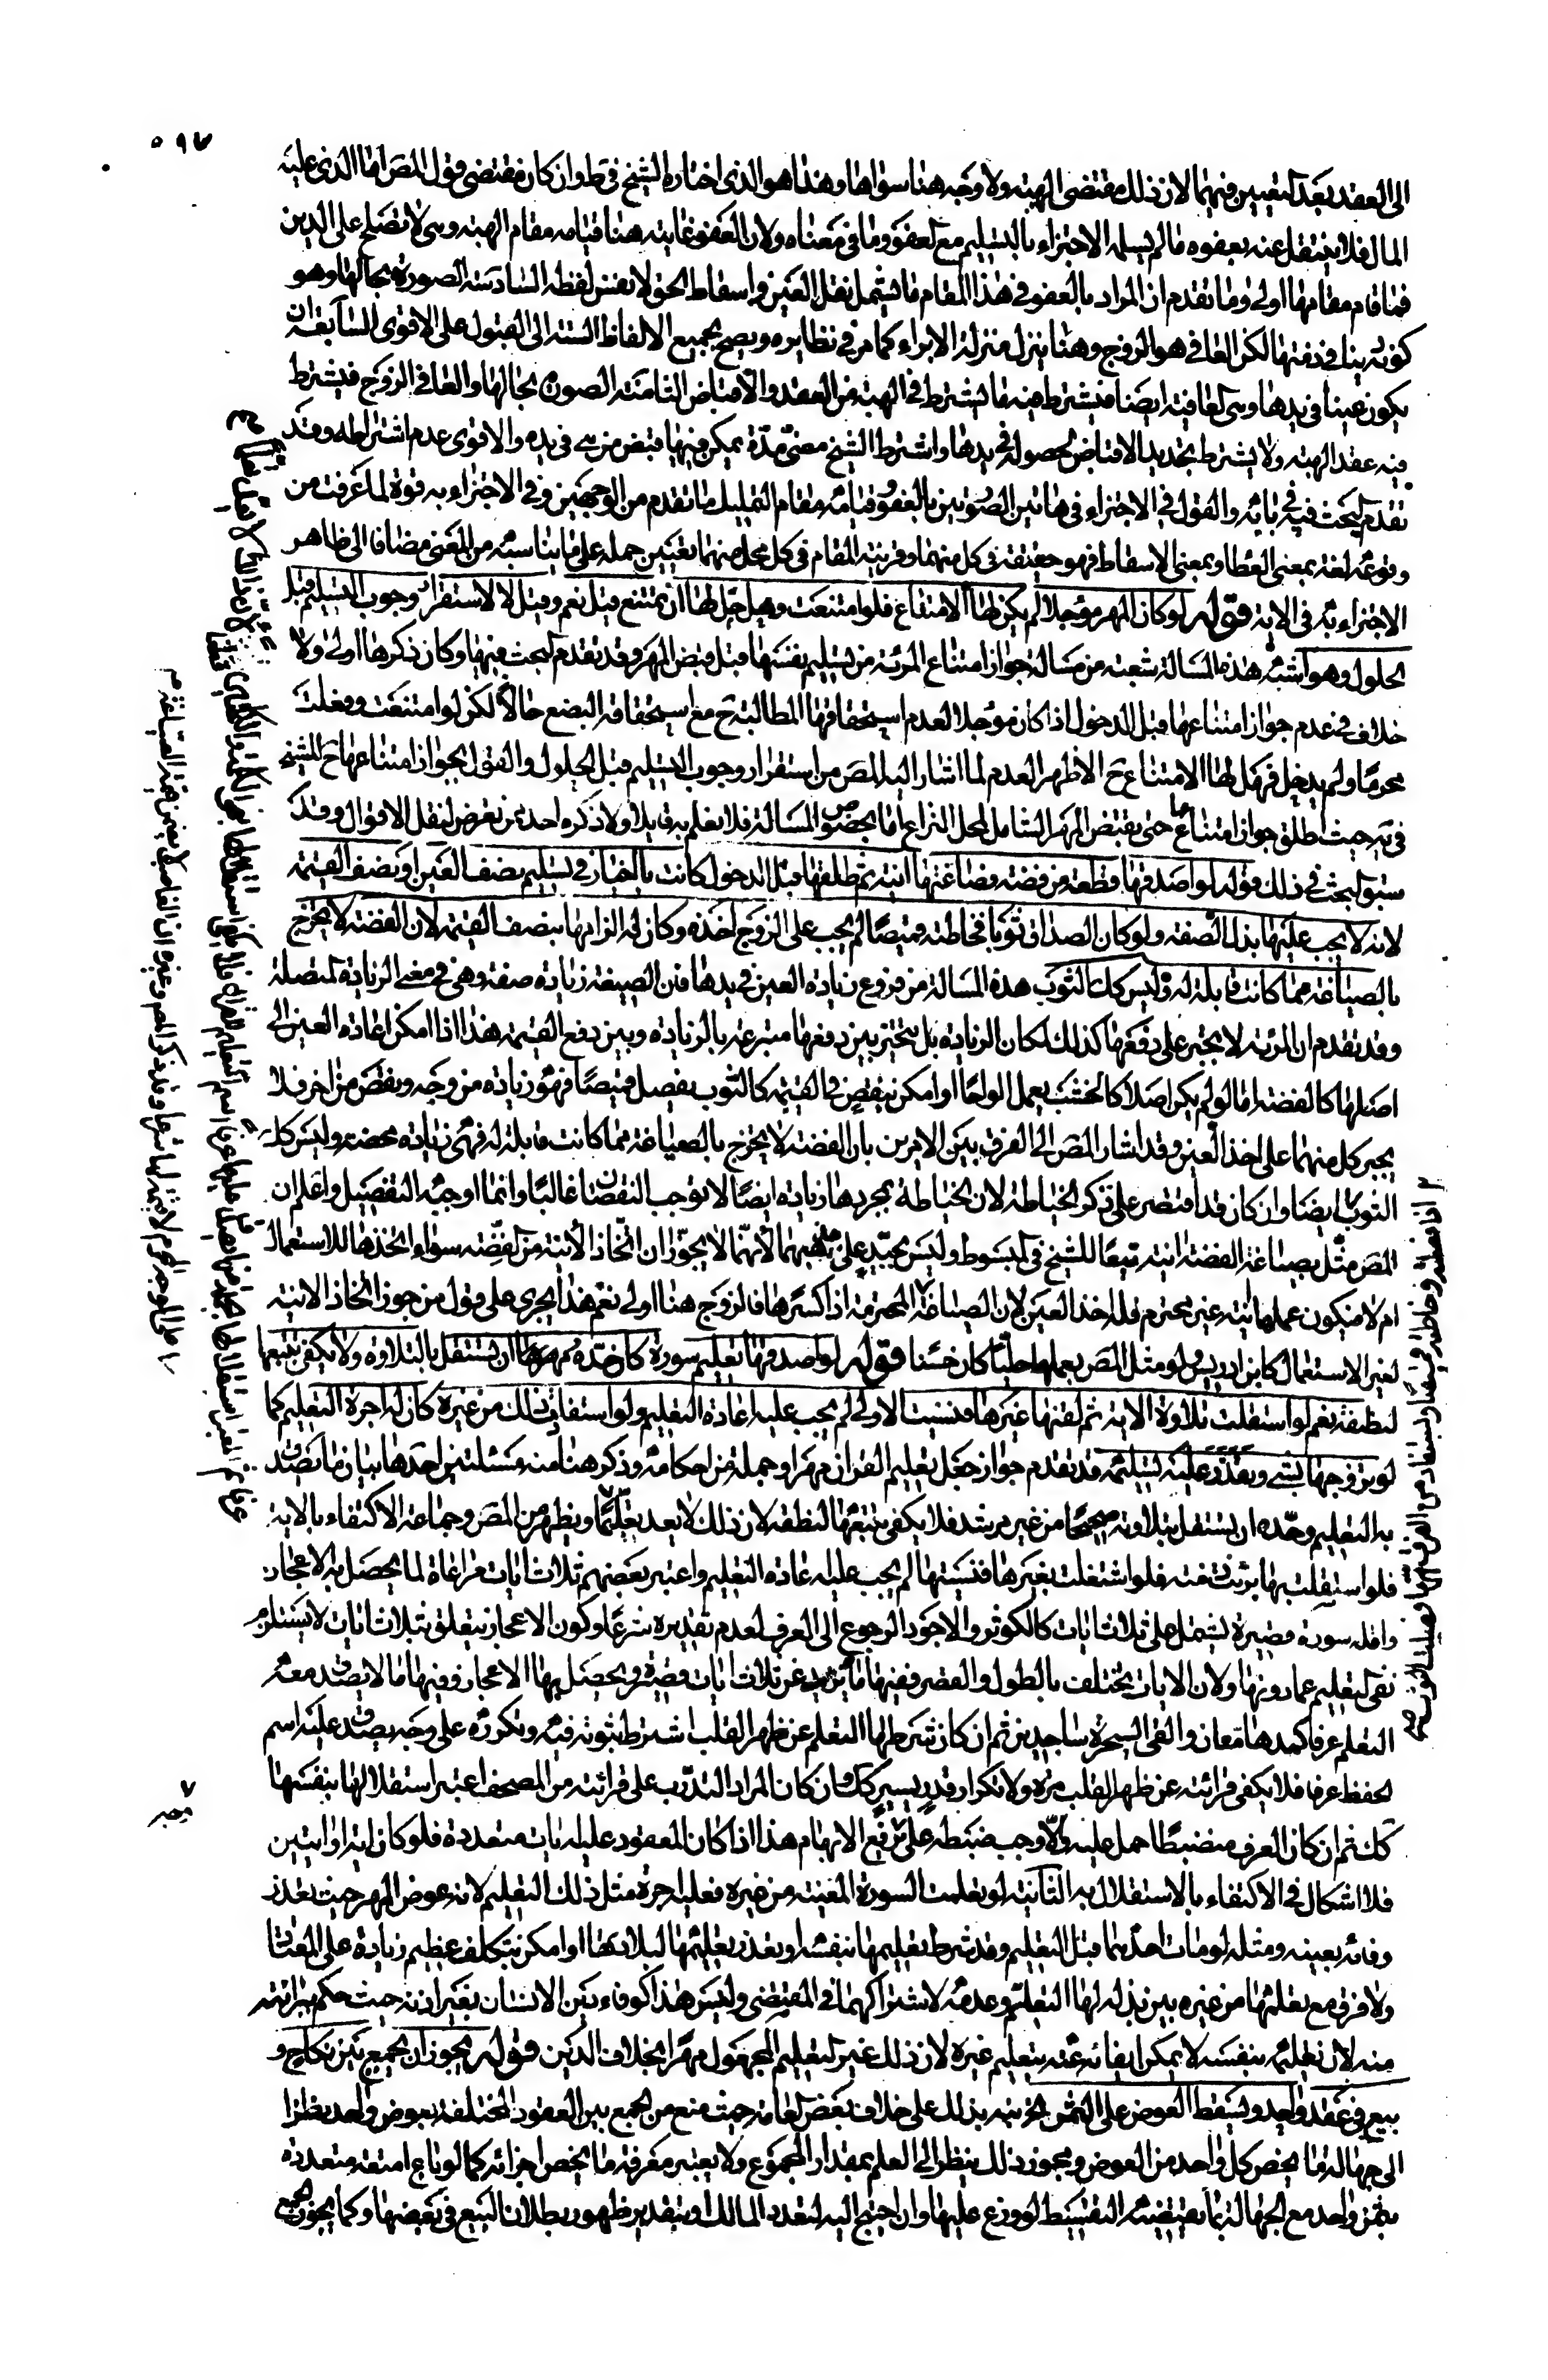 ٥٩٧
الى العقد بعد التعيين فيهما لان ذلك مقتضى الهبة ولا وجه هنا سواها وهذا هو الذى اختاره الشيخ فى ط وان كان مقتضى قول المص اما الذى عليه
المال فلا ينتقل عنه بعفوه ما لم يسلمه الاجتزاء بالتسليم مع العفو وما فى معناه ولان العفو غايته هنا قيامه مقام الهبة وهى لا تصلح على الدين
فما قام مقامها اولى وما تقدم ان المراد بالعفو فى هذا المقام ما يشمل نقل العين واسقاط الحق لا نفس لفظه السادسة الصورة بحالها وهو
كونه دينا فى ذمتها لكن العافى هو الزوج وهنا ينزل منزلة الابراء كما مر فى نظايره ويصح بجميع الالفاظ الستة الى القبول على الاقوى السابعة ان
يكون عينا فى يدها وهى العافية ايضا فيشترط فيه ما يشترط فى الهبة من العقد والاقباض الثامنة الصورة بحالها والعافى الزوج فيشترط
فيه عقد الهبة ولا يشترط تجديد الاقباض لحصوله فى يدها واشترط الشيخ مضى مدة يمكن فيها قبض من هى فى يده والاقوى عدم اشتراطه وقد
تقدم البحث فيه فى بابه والقول فى الاجتزاء فى هاتين الصورتين بالعفو وقيامه مقام التمليك ما تقدم من الوجهين وفى الاجتزاء به قوة لما عرفت من
وقوعه لغة بمعنى العطا وبمعنى الاسقاط فهو حقيقة فى كل منهما وقرينة المقام فى كل محل منهما تعين حمله على ما يناسبه من المعنى مضافا الى ظاهر
الاجتزاء به فى الاية قوله لو كان المهر مؤجلا لم يكن لها الامتناع فلو امتنعت وحل هل لها ان تمتنع قيل نعم وقيل لا لاستقرار وجوب التسليم قبل
الحلول وهو اشبه هذه المسالة شعبة من مسالة جواز امتناع المرئة من تسليم نفسها قبل قبض المهر وقد تقدم البحث فيها وكان ذكرها اولى ولا
خلاف فى عدم جواز امتناعها قبل الدخول اذا كان مؤجلا لعدم استحقاقها المطالبة ح مع استحقاقه البضع حالا لكن لو امتنعت وفعلت
محرما ولم يدخل فهل لها الامتناع ح الاظهر العدم لما اشار اليه المص من استقرار وجوب التسليم قبل الحلول والقول بجواز امتناعها ح للشيخ
فى يه حيث اطلق جواز امتناعها حتى تقبض المهر الشامل لمحل النزاع اما بخصوص المسالة فلا نعلم به قايلا ولا ذكره احد ممن تعرض لنقل الاقوال وقد
سبق البحث فى ذلك قوله لو اصدقها قطعة من فضة فصاغتها انية ثم طلقها قبل الدخول كانت بالخيار فى تسليم نصف العين او نصف القيمة
لانه لا يجب عليها بذل الصفة ولو كان الصداق ثوبا فخاطته قميصا لم يجب على الزوج اخذه وكان له الزامها بنصف القيمة لان الفضة لا تخرج
بالصياغة عما كانت قابلة له وليس كك الثوب هذه المسالة من فروع زيادة العين فى يدها فان الصيغة زيادة صفة وهى فى معنى الزيادة المتصلة
وقد تقدم ان المرئة لا تجبر على دفعها كذلك لمكان الزيادة بل تتخير بين دفعها متبرعة بالزيادة وبين دفع القيمة هذا اذا امكن اعادة العين الى
اصلها كالفضة اما لو لم يكن اصلا كالخشب يعمل الواحا او امكن بنقص فى القيمة كالثوب يفصل قميصا فهو زيادة من وجه ونقص من اخر فلا
يجبر كل منهما على اخذ العين وقد اشار المص الى الفرق بين الامرين بان الفضة لا تخرج بالصياغة عما كانت قابلة له فهى زيادة محضة وليس كك
الثوب ايضا وان كان قد اقتصر على ذكر الخياطة لان الخياطة بمجردها زيادة ايضا لا توجب النقصان غالبا وانما اوجبه التفصيل واعلم ان
المص مثل بصياغة الفضة انية تبعا للشيخ فى المبسوط وليس بجيد على مذهبهما لانهما لا يجوزان اتخاذ الانية من الفضة سواء اتخذها للاستعمال
ام لا فيكون عملها انية غير محترم فله اخذ العين لان الصياغة المحترمة اذا كسرها فالزوج هنا اولى نعم هذا يجرى على قول من جوز اتخاذ الانية
لغير الاستعمال كابن ادريس ولو مثل المص بعملها حليا كان حسنا قوله لو اصدقها تعليم سورة كان حده ان تستقل بالتلاوة ولا يكفى تتبعها
لنطقه نعم لو استقلت بتلاوة الاية ثم لقنها غيرها فنسيت الاولى لم يجب عليه اعادة التعليم ولو استفادت ذلك من غيره كان لها اجرة التعليم كما
لو تزوجها بشئ وتعذر عليه تسليمه قد تقدم جواز جعل تعليم القران مهرا وجملة من احكامه وذكر هنا منه مسئلتين احدها بيان ما يصدق
به التعليم وحده ان يستقل بتلاوته صحيحا من غير مرشد فلا يكفى تتبعها لنطقه لان ذلك لا يعد تعليما ويظهر من المص وجماعة الاكتفاء بالاية
فلو استقلت بها برئت ذمته فلو اشتغلت بغيرها فنسيتها لم يجب عليه اعادة التعليم واعتبر بعضهم ثلاث ايات مراعاة لما يحصل به الاعجاز
واقله سورة قصيرة يشتمل على ثلاث ايات كالكوثر والاجود الرجوع الى العرف لعدم تقديره شرعا وكون الاعجاز يتعلق بثلاث ايات لا يستلزم
نفى التعليم عما دونها ولان الايات تختلف بالطول والقصر ففيها ما يزيد عن ثلاث ايات قصيرة ويحصل بها الاعجاز وفيها ما لا يصدق معه
التعلم عرفا كمدهامتان والقى السحرة ساجدين ثم ان كان شرطها التعلم عن ظهر القلب اشترط ثبوته فيه وتكرره على وجه يصدق عليه اسم
الحفظ عرفا فلا يكفى قرائته عن ظهر القلب مرة ولا تكرار قدر يسير كك وان كان المراد التدرب على قرائته من المصحف اعتبر استقلالها بنفسها
كك ثم ان كان العرف منضبطا حمل عليه والا وجب ضبطه على رفع الابهام هذا اذا كان المعقود عليه ايات متعددة فلو كان اية او ايتين
فلا اشكال فى الاكتفاء بالاستقلال به الثانية لو تعلمت السورة المعينة من غيره فعليه اجرة مثل ذلك التعليم لانه عوض المهر حيث تعذر
وفائه بعينه ومثله لو مات احدهما قبل التعليم وقد شرط تعليمها بنفسه او تعذر تعليمها لبلادتها او امكن بتكلف عظيم زيادة على المعتاد
ولا فرق مع تعلمها من غيره بين بذله لها التعليم وعدمه لاشتراكهما فى المقتضى وليس هذا كوفاء دين الانسان بغير اذنه حيث حكم ببرائته
منه لان تعليمه بنفسه لا يمكن ايفائه عنه بتعليم غيره لان ذلك غير التعليم المجعول مهرا بخلاف الدين قوله يجوز ان يجمع بين نكاح و
بيع فى عقد واحد ويسقط العوض على الثمن نبه بذلك على خلاف بعض العامة حيث منع من الجمع بين العقود المختلفة بعوض واحد نظرا
الى جهالة ما يخص كل واحد من العوض ومجوز ذلك ينظر الى العلم بمقدار المجموع ولا يعتبر معرفة ما يخص اجزائه كما لو باع امتعة متعددة
بثمن واحد مع الجهالة بما يقتضيه التقسيط لو وزع عليها وان احتيج اليه لتعدد المالك او بتقدير ظهور بطلان البيع فى بعضها وكما يجوز الجمع